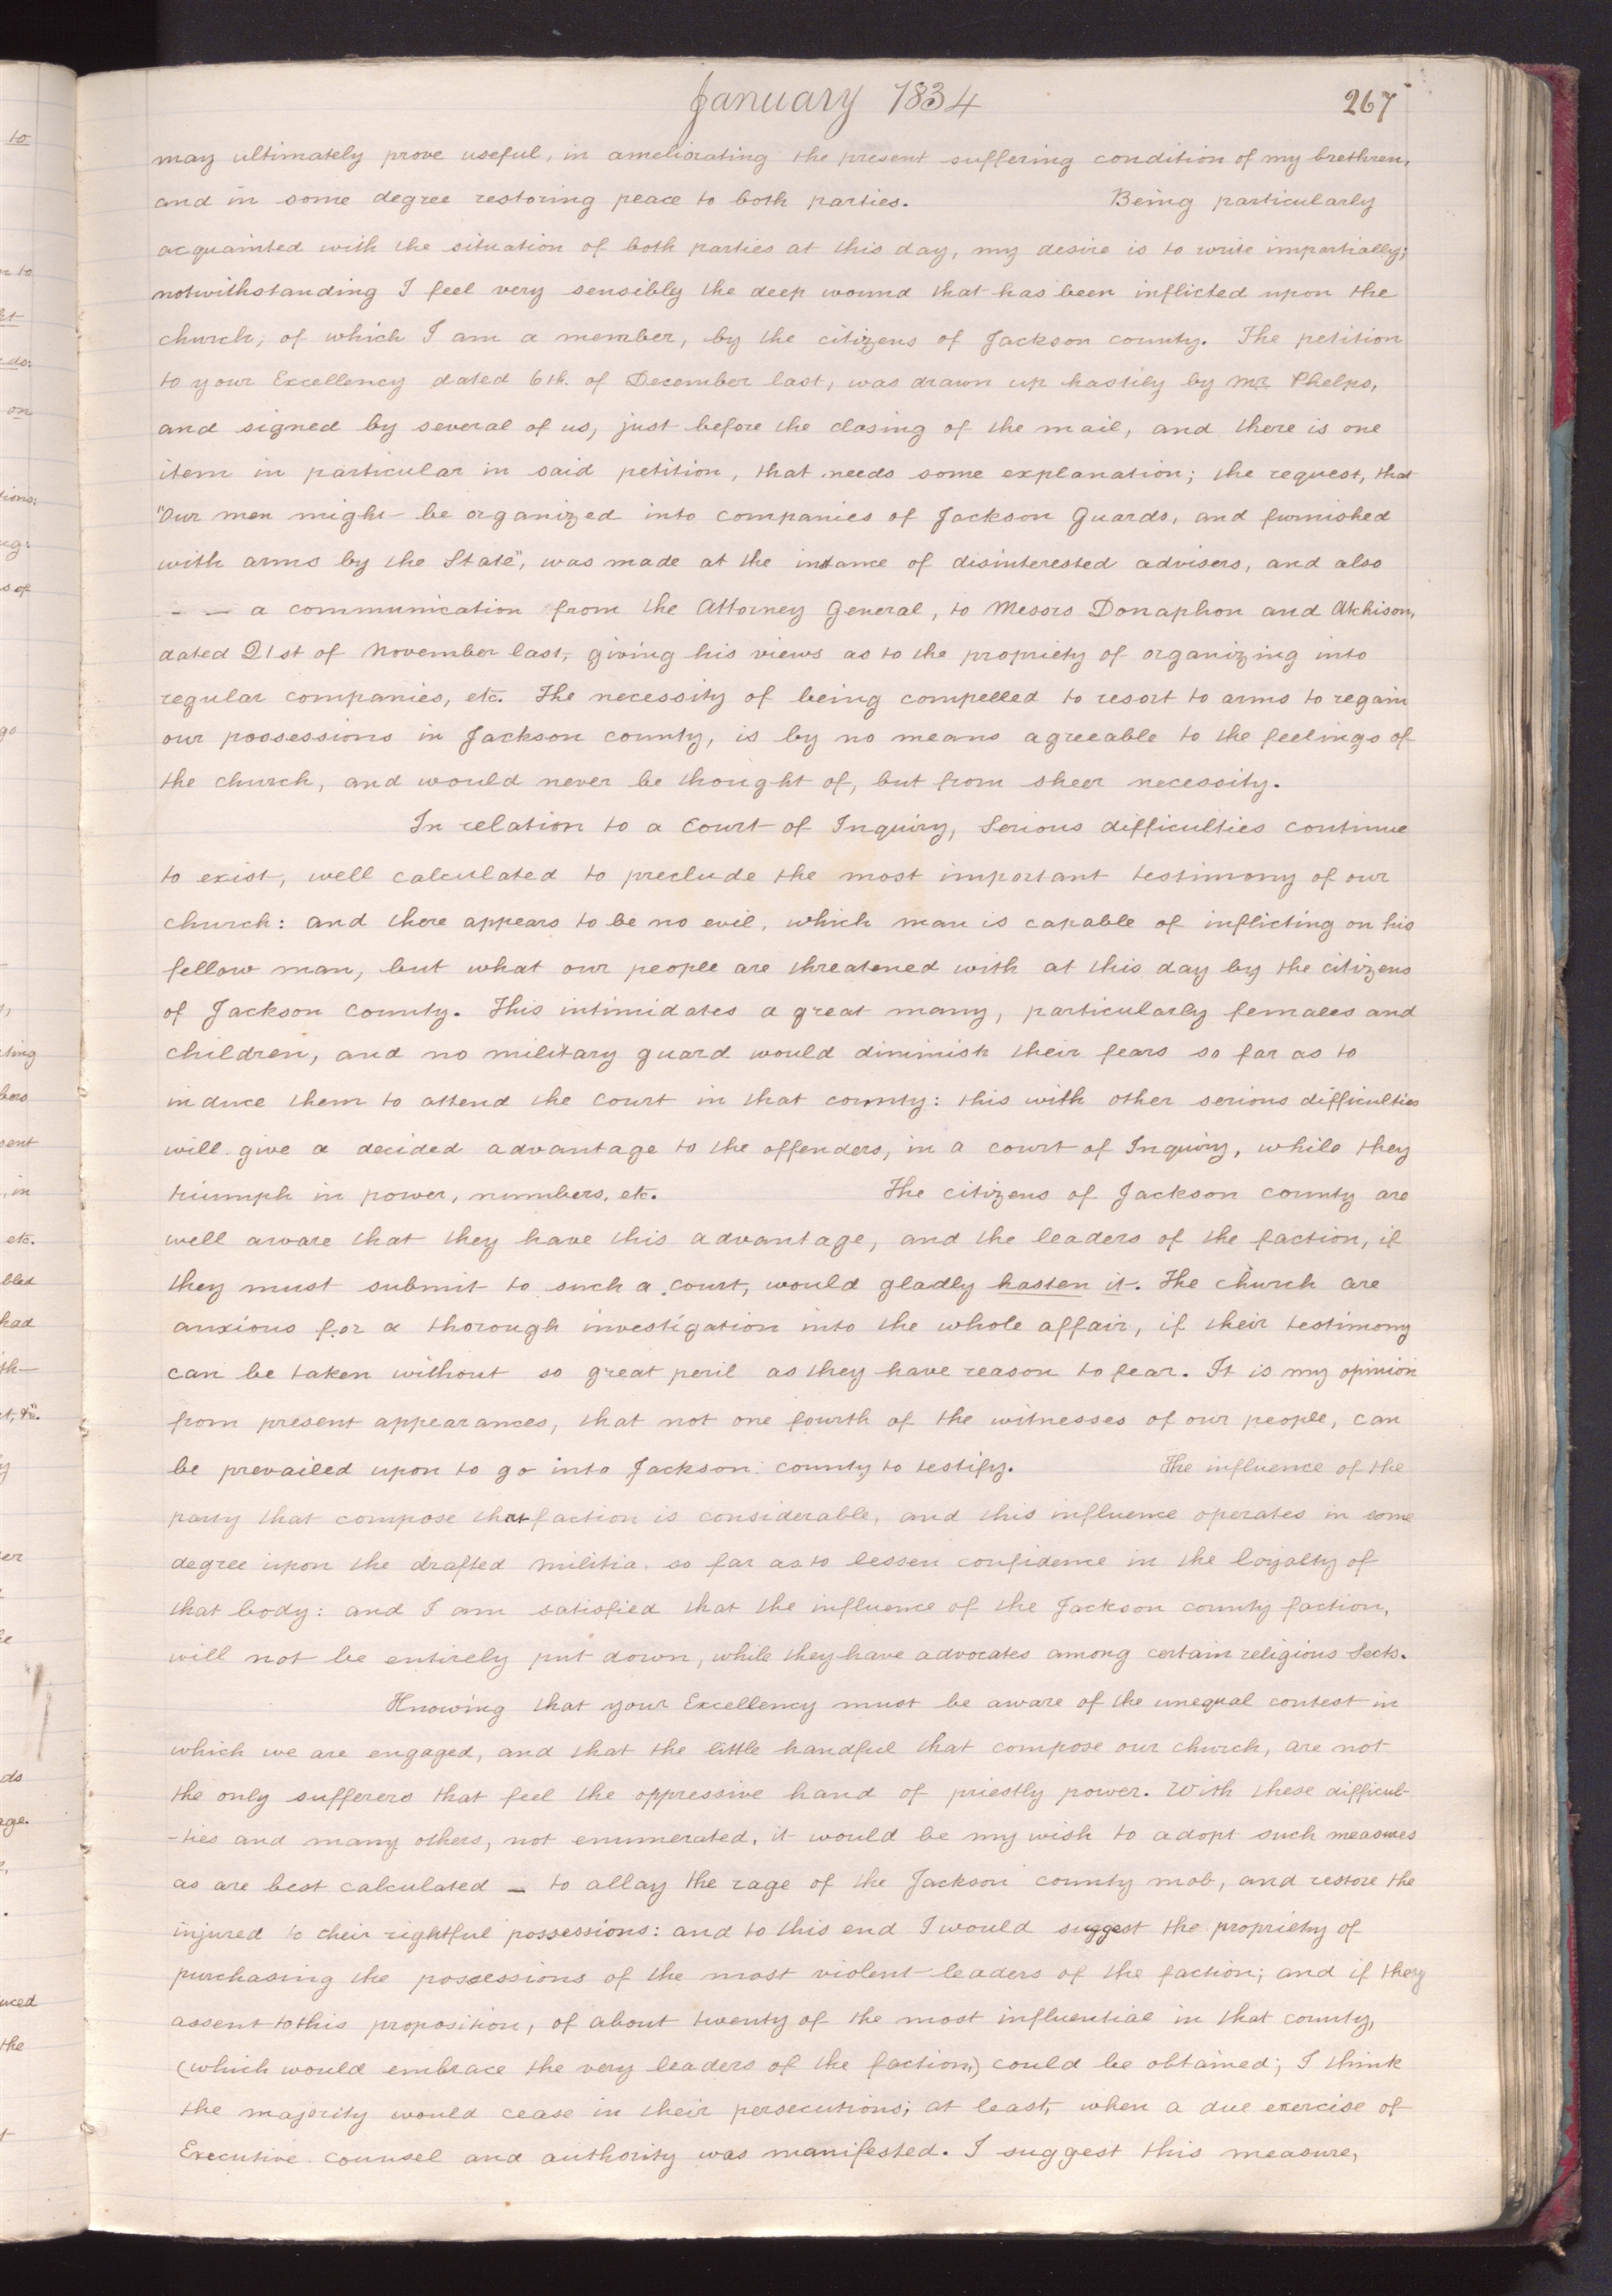 January 1834
267
may ultimately prove useful, in ameliorating the present suffering condition of my brethren,
and in some degree restoring peace to both parties. Being particularly
acquainted with the situation of both parties at this day, my desire is to write impartially;
notwithstanding I feel very sensibly the deep wound that has been inflicted upon the
church, of which I am a member, by the citizens of Jackson county. The petition
to your Excellency dated 6th. of December last, was drawn up hastily by Mr. Phelps,
and signed by several of us, just before the closing of the mail, and there is one
item in particular in said petition, that needs some explanation; the request, that
"Our men might be organized into companies of Jackson Guards, and furnished
with arms by the State", was made at the instance of disinterested advisers, and also
– – a communication from the Attorney General, to Messrs Donaphon and Atchison,
dated 21st of November last, giving his views as to the propriety of organizing into
regular companies, etc. The necessity of being compelled to resort to arms to regain
our possessions in Jackson county, is by no means agreeable to the feelings of
the church, and would never be thought of, but from sheer necessity.
In relation to a Court of Inquiry, Serious difficulties continue
to exist, well calculated to preclude the most important testimony of our
church: and there appears to be no evil, which man is capable of inflicting on his
fellow man, but what our people are threatened with at this day by the citizens
of Jackson County. This intimidates a great many, particularly females and
children, and no military guard would diminish their fears so far as to
induce them to attend the Court in that county: this with other serious difficulties
will give a decided advantage to the offenders, in a court of Inquiry, while they
triumph in power, numbers, etc. The citizens of Jackson county are
well aware that they have this advantage, and the leaders of the faction, if
they must submit to such a court, would gladly hasten it. The church are
anxious for a thorough investigation into the whole affair, if their testimony
can be taken without so great peril as they have reason to fear. It is my opinion
from present appearances, that not one fourth of the witnesses of our people, can
be prevailed upon to go into Jackson county to testify. The influence of the
party that compose that faction is considerable, and this influence operates in some
degree upon the drafted militia, so far as to lessen confidence in the loyalty of
that body: and I am satisfied that the influence of the Jackson county faction,
will not be entirely put down, while they have advocates among certain religious Sects.
Knowing that your Excellency must be aware of the unequal contest in
which we are engaged, and that the little handful that compose our church, are not
the only sufferers that feel the oppressive hand of priestly power. With these difficul-
-ties and many others, not enumerated, it would be my wish to adopt such measures
as are best calculated – to allay the rage of the Jackson county mob, and restore the
injured to their rightful possessions: and to this end I would suggest the propriety of
purchasing the possessions of the most violent leaders of the faction; and if they
assent to this proposition, of about twenty of the most influential in that county,
(which would embrace the very leaders of the faction,) could be obtained; I think
the majority would cease in their persecutions; at least, when a due exercise of
Executive counsel and authority was manifested. I suggest this measure,